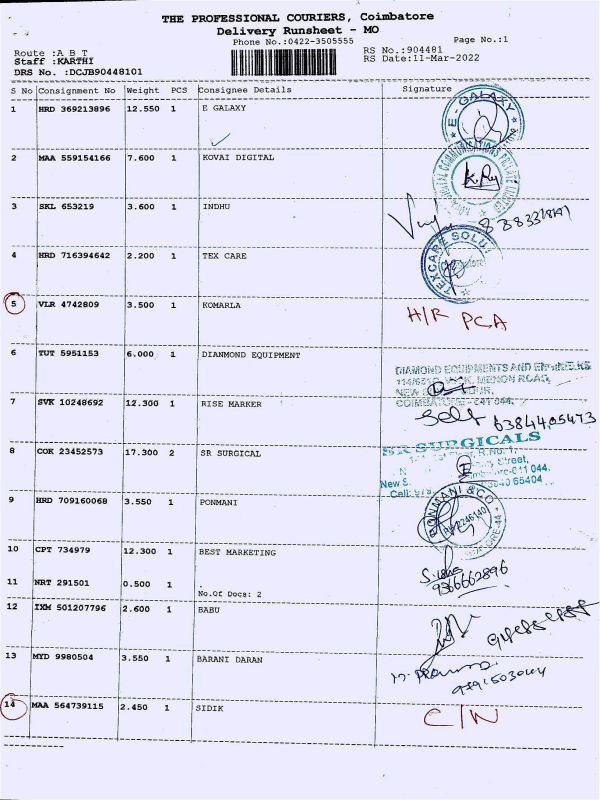 THE PROFESSIONAL COURIERS, Coimbatore
Delivery Runsheet - MO
Phone No.:0422-3505555
Page No.:1
Route :A B T
RS No.:904481
Staff :KARTHI
RS Date:11-Mar-2022
DRS No. :DCJB90448101
S No Consignment No Weight PCS Consignee Details Signature
1 HRD 369213896 12.550 1 E GALAXY
E - GALAXY
2 MAA 559154166 7.600 1 KOVAI DIGITAL
K.Ry
3 SKL 653219 3.600 1 INDHU
4 HRD 716394642 2.200 1 TEX CARE
TEXCARE SOLU
5 VLR 4742809 3.500 1 KOMARLA
H/R PCA
6 TUT 5951153 6.000 1 DIANMOND EQUIPMENT
DIAMOND EQUIPMENTS AND
MENON ROAD,
NEW
7 SVK 10248692 12.300 1 RISE MARKER
Self 6384405473
8 COK 23452573 17.300 2 SR SURGICAL
SR SURGICALS
Street,
New S
Cell: 65404
9 HRD 709160068 3.550 1 PONMANI
PONMANI & CO
10 CPT 734979 12.300 1 BEST MARKETING
9366662896
11 NRT 291501 0.500 1
No.Of Docs: 2
12 IXM 501207796 2.600 1 BABU
13 MYD 9980504 3.550 1 BARANI DARAN
14 MAA 564739115 2.450 1 SIDIK
C/N